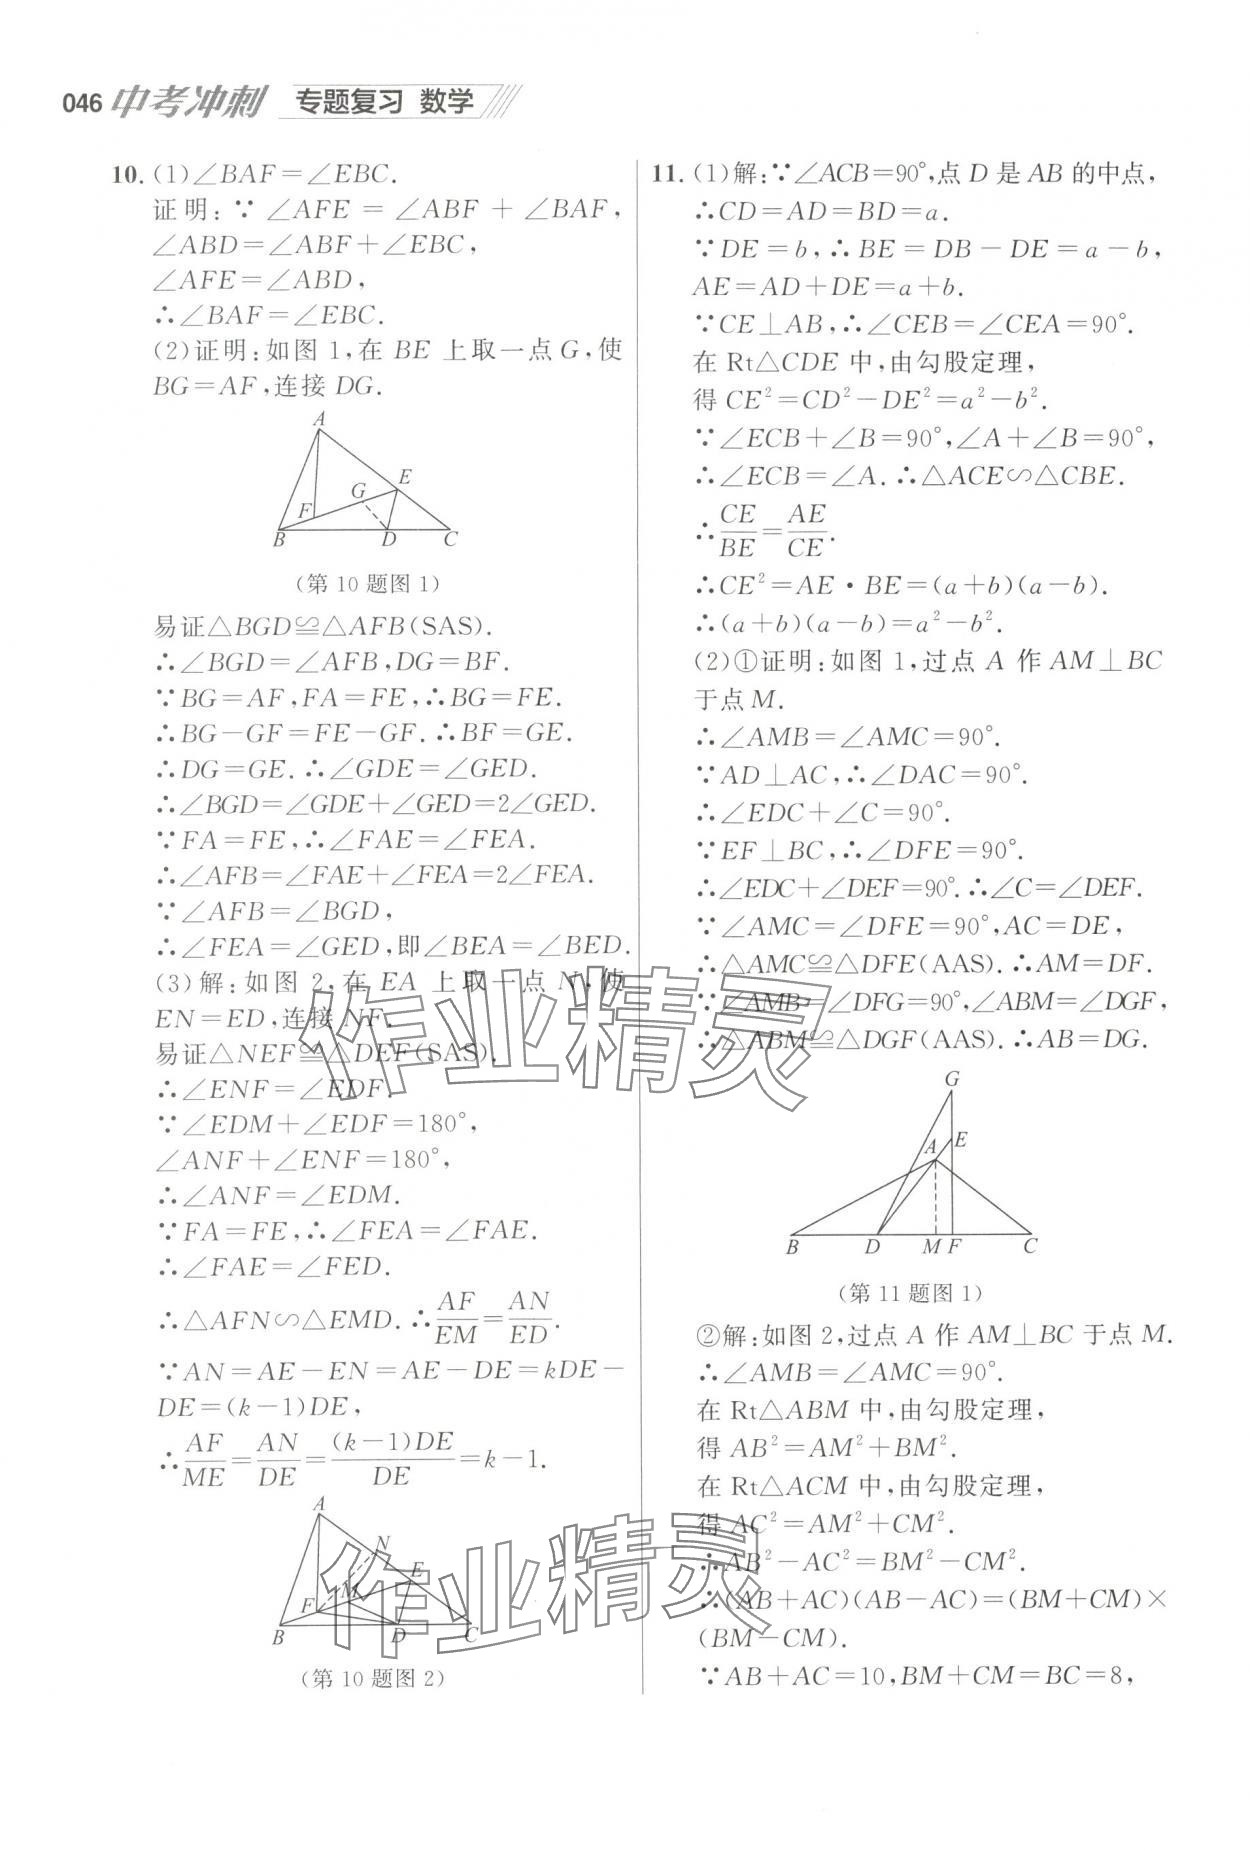 046 中考冲刺 专题复习 数学
10. (1)∠BAF=∠EBC.
证明:∵∠AFE=∠ABF+∠BAF,
∠ABD=∠ABF+∠EBC,
∠AFE=∠ABD,
∴∠BAF=∠EBC.
(2)证明:如图 1,在 BE 上取一点 G,使
BG=AF,连接 DG.
A
E
G
F
B D C
(第 10 题图 1)
易证△BGD≌△AFB(SAS).
∴∠BGD=∠AFB,DG=BF.
∵BG=AF,FA=FE,∴BG=FE.
∴BG-GF=FE-GF.∴BF=GE.
∴DG=GE.∴∠GDE=∠GED.
∴∠BGD=∠GDE+∠GED=2∠GED.
∵FA=FE,∴∠FAE=∠FEA.
∴∠AFB=∠FAE+∠FEA=2∠FEA.
∵∠AFB=∠BGD,
∴∠FEA=∠GED,即∠BEA=∠BED.
(3)解:如图 2,在 EA 上取一点 N,使
EN=ED,连接 NF.
易证△NEF≌△DEF(SAS).
∴∠ENF=∠EDF.
∵∠EDM+∠EDF=180°,
∠ANF+∠ENF=180°,
∴∠ANF=∠EDM.
∵FA=FE,∴∠FEA=∠FAE.
∴∠FAE=∠FED.
∴△AFN∽△EMD.∴AF/EM=AN/ED.
∵AN=AE-EN=AE-DE=kDE-
DE=(k-1)DE,
∴AF/ME=AN/DE=(k-1)DE/DE=k-1.
A
N
E
M
F
B D C
(第 10 题图 2)
11. (1)解:∵∠ACB=90°,点 D 是 AB 的中点,
∴CD=AD=BD=a.
∵DE=b,∴BE=DB-DE=a-b,
AE=AD+DE=a+b.
∵CE⊥AB,∴∠CEB=∠CEA=90°.
在 Rt△CDE 中,由勾股定理,
得 CE²=CD²-DE²=a²-b².
∵∠ECB+∠B=90°,∠A+∠B=90°,
∴∠ECB=∠A.∴△ACE∽△CBE.
∴CE/BE=AE/CE.
∴CE²=AE·BE=(a+b)(a-b).
∴(a+b)(a-b)=a²-b².
(2)①证明:如图 1,过点 A 作 AM⊥BC
于点 M.
∴∠AMB=∠AMC=90°.
∵AD⊥AC,∴∠DAC=90°.
∴∠EDC+∠C=90°.
∵EF⊥BC,∴∠DFE=90°.
∴∠EDC+∠DEF=90°.∴∠C=∠DEF.
∵∠AMC=∠DFE=90°,AC=DE,
∴△AMC≌△DFE(AAS).∴AM=DF.
∵∠AMB=∠DFG=90°,∠ABM=∠DGF,
∴△ABM≌△DGF(AAS).∴AB=DG.
G
E
A
B D M F C
(第 11 题图 1)
②解:如图 2,过点 A 作 AM⊥BC 于点 M.
∴∠AMB=∠AMC=90°.
在 Rt△ABM 中,由勾股定理,
得 AB²=AM²+BM².
在 Rt△ACM 中,由勾股定理,
得 AC²=AM²+CM².
∴AB²-AC²=BM²-CM².
∴(AB+AC)(AB-AC)=(BM+CM)×
(BM-CM).
∵AB+AC=10,BM+CM=BC=8,
作业精灵
作业精灵